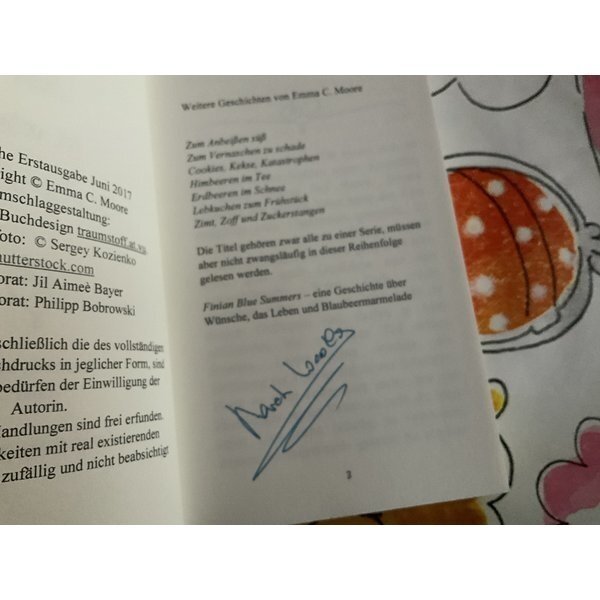 he Erstausgabe Juni 2017
right © Emma C. Moore
mschlaggestaltung:
Buchdesign traumstoff.at
oto: © Sergey Kozienko
utterstock.com
orat: Jil Aimeè Bayer
orat: Philipp Bobrowski
schließlich die des vollständigen
hdrucks in jeglicher Form, sind
bedürfen der Einwilligung der
Autorin.
andlungen sind frei erfunden.
keiten mit real existierenden
zufällig und nicht beabsichtigt
Weitere Geschichten von Emma C. Moore
Zum Anbeißen süß
Zum Vernaschen zu schade
Cookies, Kekse, Katastrophen
Himbeeren im Tee
Erdbeeren im Schnee
Lebkuchen zum Frühstück
Zimt, Zoff und Zuckerstangen
Die Titel gehören zwar alle zu einer Serie, müssen
aber nicht zwangsläufig in dieser Reihenfolge
gelesen werden.
Finian Blue Summers – eine Geschichte über
Wünsche, das Leben und Blaubeermarmelade
3